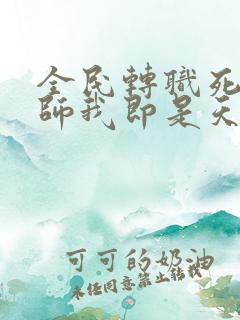 全民轉職死
師我即是天
可可的奶油
未經同意禁止轉載